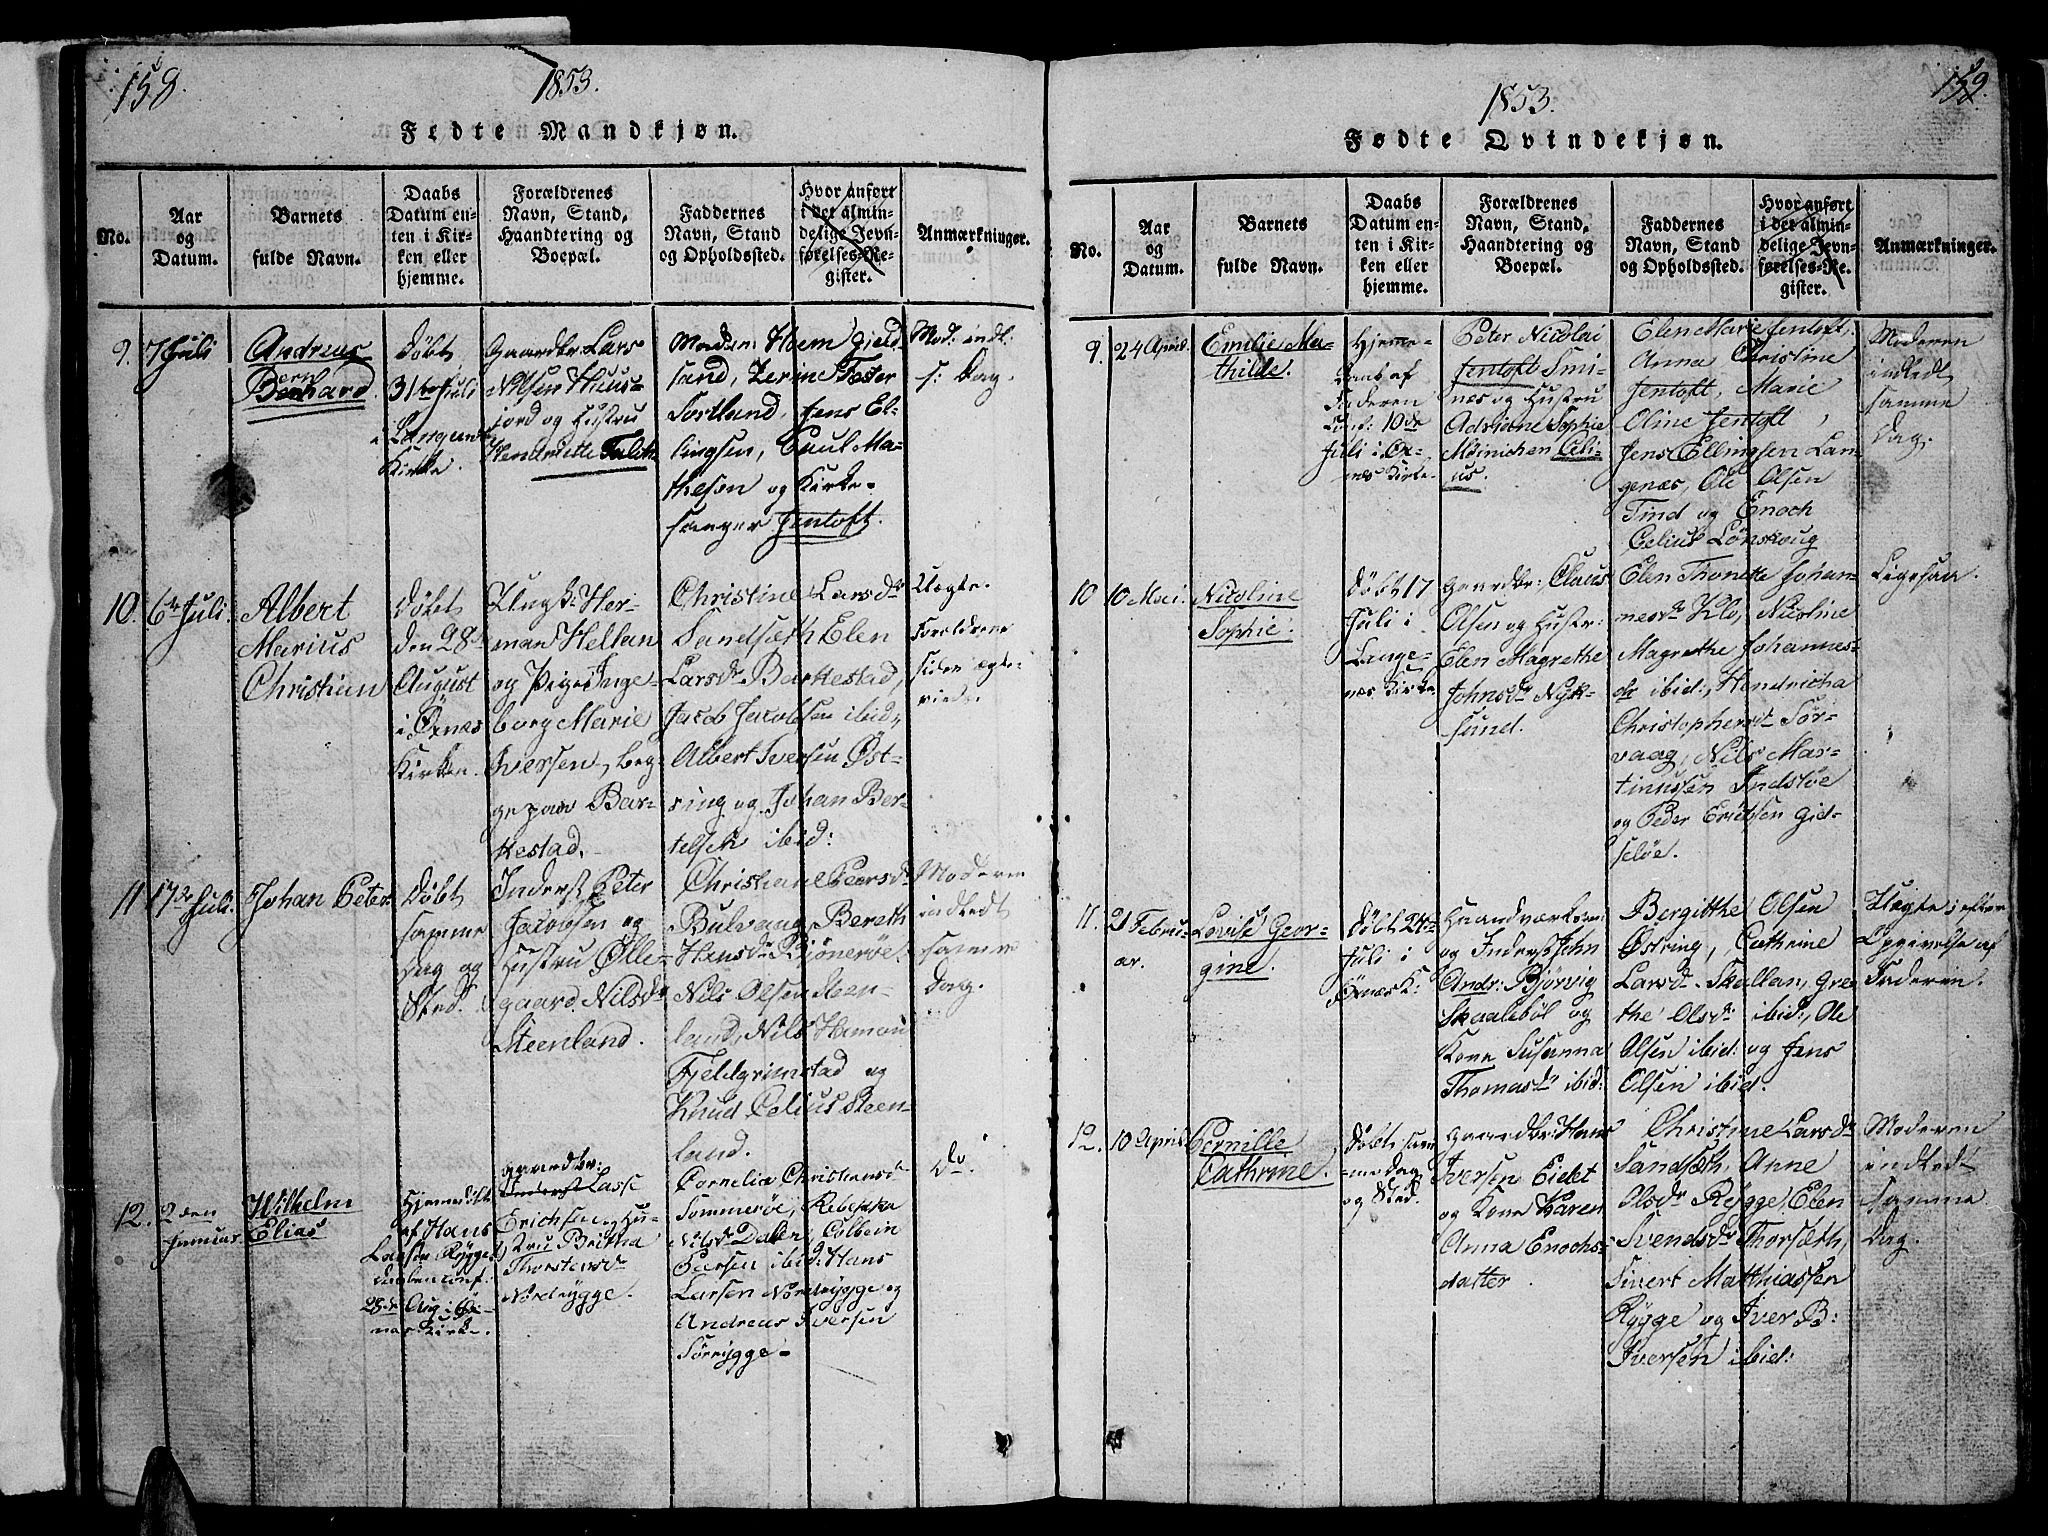 158.
1853.
Fødte Mandkjøn.
No.
Aar
og
Datum.
Barnets
fulde Navn.
Daabs
Datum en-
ten i Kir-
ken eller
hjemme.
Forældrenes
Navn, Stand,
Haandtering og
Boepæl.
Faddernes
Navn, Stand
og Opholdssted.
Hvor anført
i det almin-
delige Jevn-
førelses-Re-
gister.
Anmærkninger.
9.
7 Juli
Andreas
Bernhard
Døbt
31te Juli
i Langenes
Kirke.
Gaardbr. Lars
Nilsen Huus-
jord og Hustru
Henriette
Madm: Hoem Gisl-
sand,
Sortland, Jens El-
lingsen, Poul Ma-
thesen og Kirke-
sanger Jentoft.
Mod: indl:
s: Dag.
10.
6te Juli.
Albert
Marius
Christian
Døbt
den 28de
August
i Øxnes
Kirken.
Ungk: Her-
man Hellan
og Pige Inge-
borg Marie
Iversen, beg-
ge paa Bar-
kestad.
Christine Larsdr
Sandsæth Elen
Larsdr Barkestad,
Jacob Jacobsen ibid,
Albert Iversen Øst-
ring og Johan Ber-
telsen ibid:
Uægte.
Forældrene
siden ægte-
viede.
11
17de Juli.
Johan Peter
Døbt
samme
Dag og
Sted.
Inderst Peter
Jacobsen og
Hustru Ølle-
gaard Nilsdr
Steenland.
Christiane Peersdr
Bulvang Bereth
Hansdr Bjønerøe.
Nils Olsen Steen-
land, Nils Hamon
Fjeldgrimstad og
Knud Celius Steen-
land.
Moderen
indledt
samme
Dag.
12.
2den
Junius
Wilhelm
Elias
Hjemmedøbt
af Hans
Larsen Rygge
Daaben conf.
28de Aug i Øx-
nes Kirke.
Gaardbr:
Inderst Lasse
Erichsen, Hu-
stru Britha
Thorstensdr
Nordrygge.
Cornelia Christiansdr
Sommerøe, Rebekka
Nilsdr Dalen, Colbein
Peersen ibid: Hans
Larsen Nordrygge og
Andreas Iversen
Sørrygge.
Do.
159.
1853.
Fødte Qvindekjøn.
No.
Aar
og
Datum.
Barnets
fulde Navn.
Daabs
Datum en-
ten i Kir-
ken eller
hjemme.
Forældrenes
Navn, Stand,
Haandtering og
Boepæl.
Faddernes
Navn, Stand
og Opholdssted.
Hvor anført
i det almin-
delige Jevn-
førelses-Re-
gister.
Anmærkninger.
9.
24 April.
Emilie Ma-
thilde.
Hjemme-
Daab af
Faderen
Conf: 10de
Juli i Øx-
nes Kirke.
Peter Nicolai
Jentoft Smi-
nes og Hustru
Adriane Sophie
Meinichen Celi-
us.
Elen Marie Jentoft,
Anna Christine
Jentoft, Marie
Oline Jentoft,
Jens Ellingsen Lan-
genæs, Ole Olsen
Tind og Enoch
Celius Lønskoug
Moderen
indledt
samme
Dag.
10
10 Mai.
Nicoline
Sophie.
Døbt 17
Juli i
Lange-
nes Kirke
Gaardbr: Claus
Olsen og Hustr:
Elen Magrethe
Johnsdr Nyk-
sund.
Elen Thonette Johan-
nesdr Klo, Nicoline
Magrethe Johannes-
dr ibid:, Hendricha
Christophersdr Sør-
vaag, Nils Mar-
tinussen Indsløe
og Peder Erichsen Gid-
sløe.
Ligesaa.
11.
21 Febru-
ar.
Lovise Geor-
gine.
Døbt 24de
Juli i
Øxnes K:
Haandværksm:
og Inderst John
Andr: Bjørvig
Skaalebøl og
Kone Susanna
Thomasdr ibid:
Bergitthe Olsen
Østring, Cathrine
Larsdr Skallan, Gre-
the Olsdr: ibid:, Ole
Olsen ibid: og Jens
Olsen ibid.
Uægte; efter
Opgivelse af
Faderen.
12.
10 April.
Pernille
Cathrine.
Døbt sam-
me Dag
og Sted.
Gaardbr: Hans
Iversen Eidet
og Kone Karen
Anna Enochs-
datter.
Christine Larsdr
Sandsæth, Anne
Olsdr Rygge, Elen
Svendsdr Thorsæth,
Sivert Matthiassen
Rygge og Iver B:
Iversen ibid:
Moderen
indledt
samme
Dag.